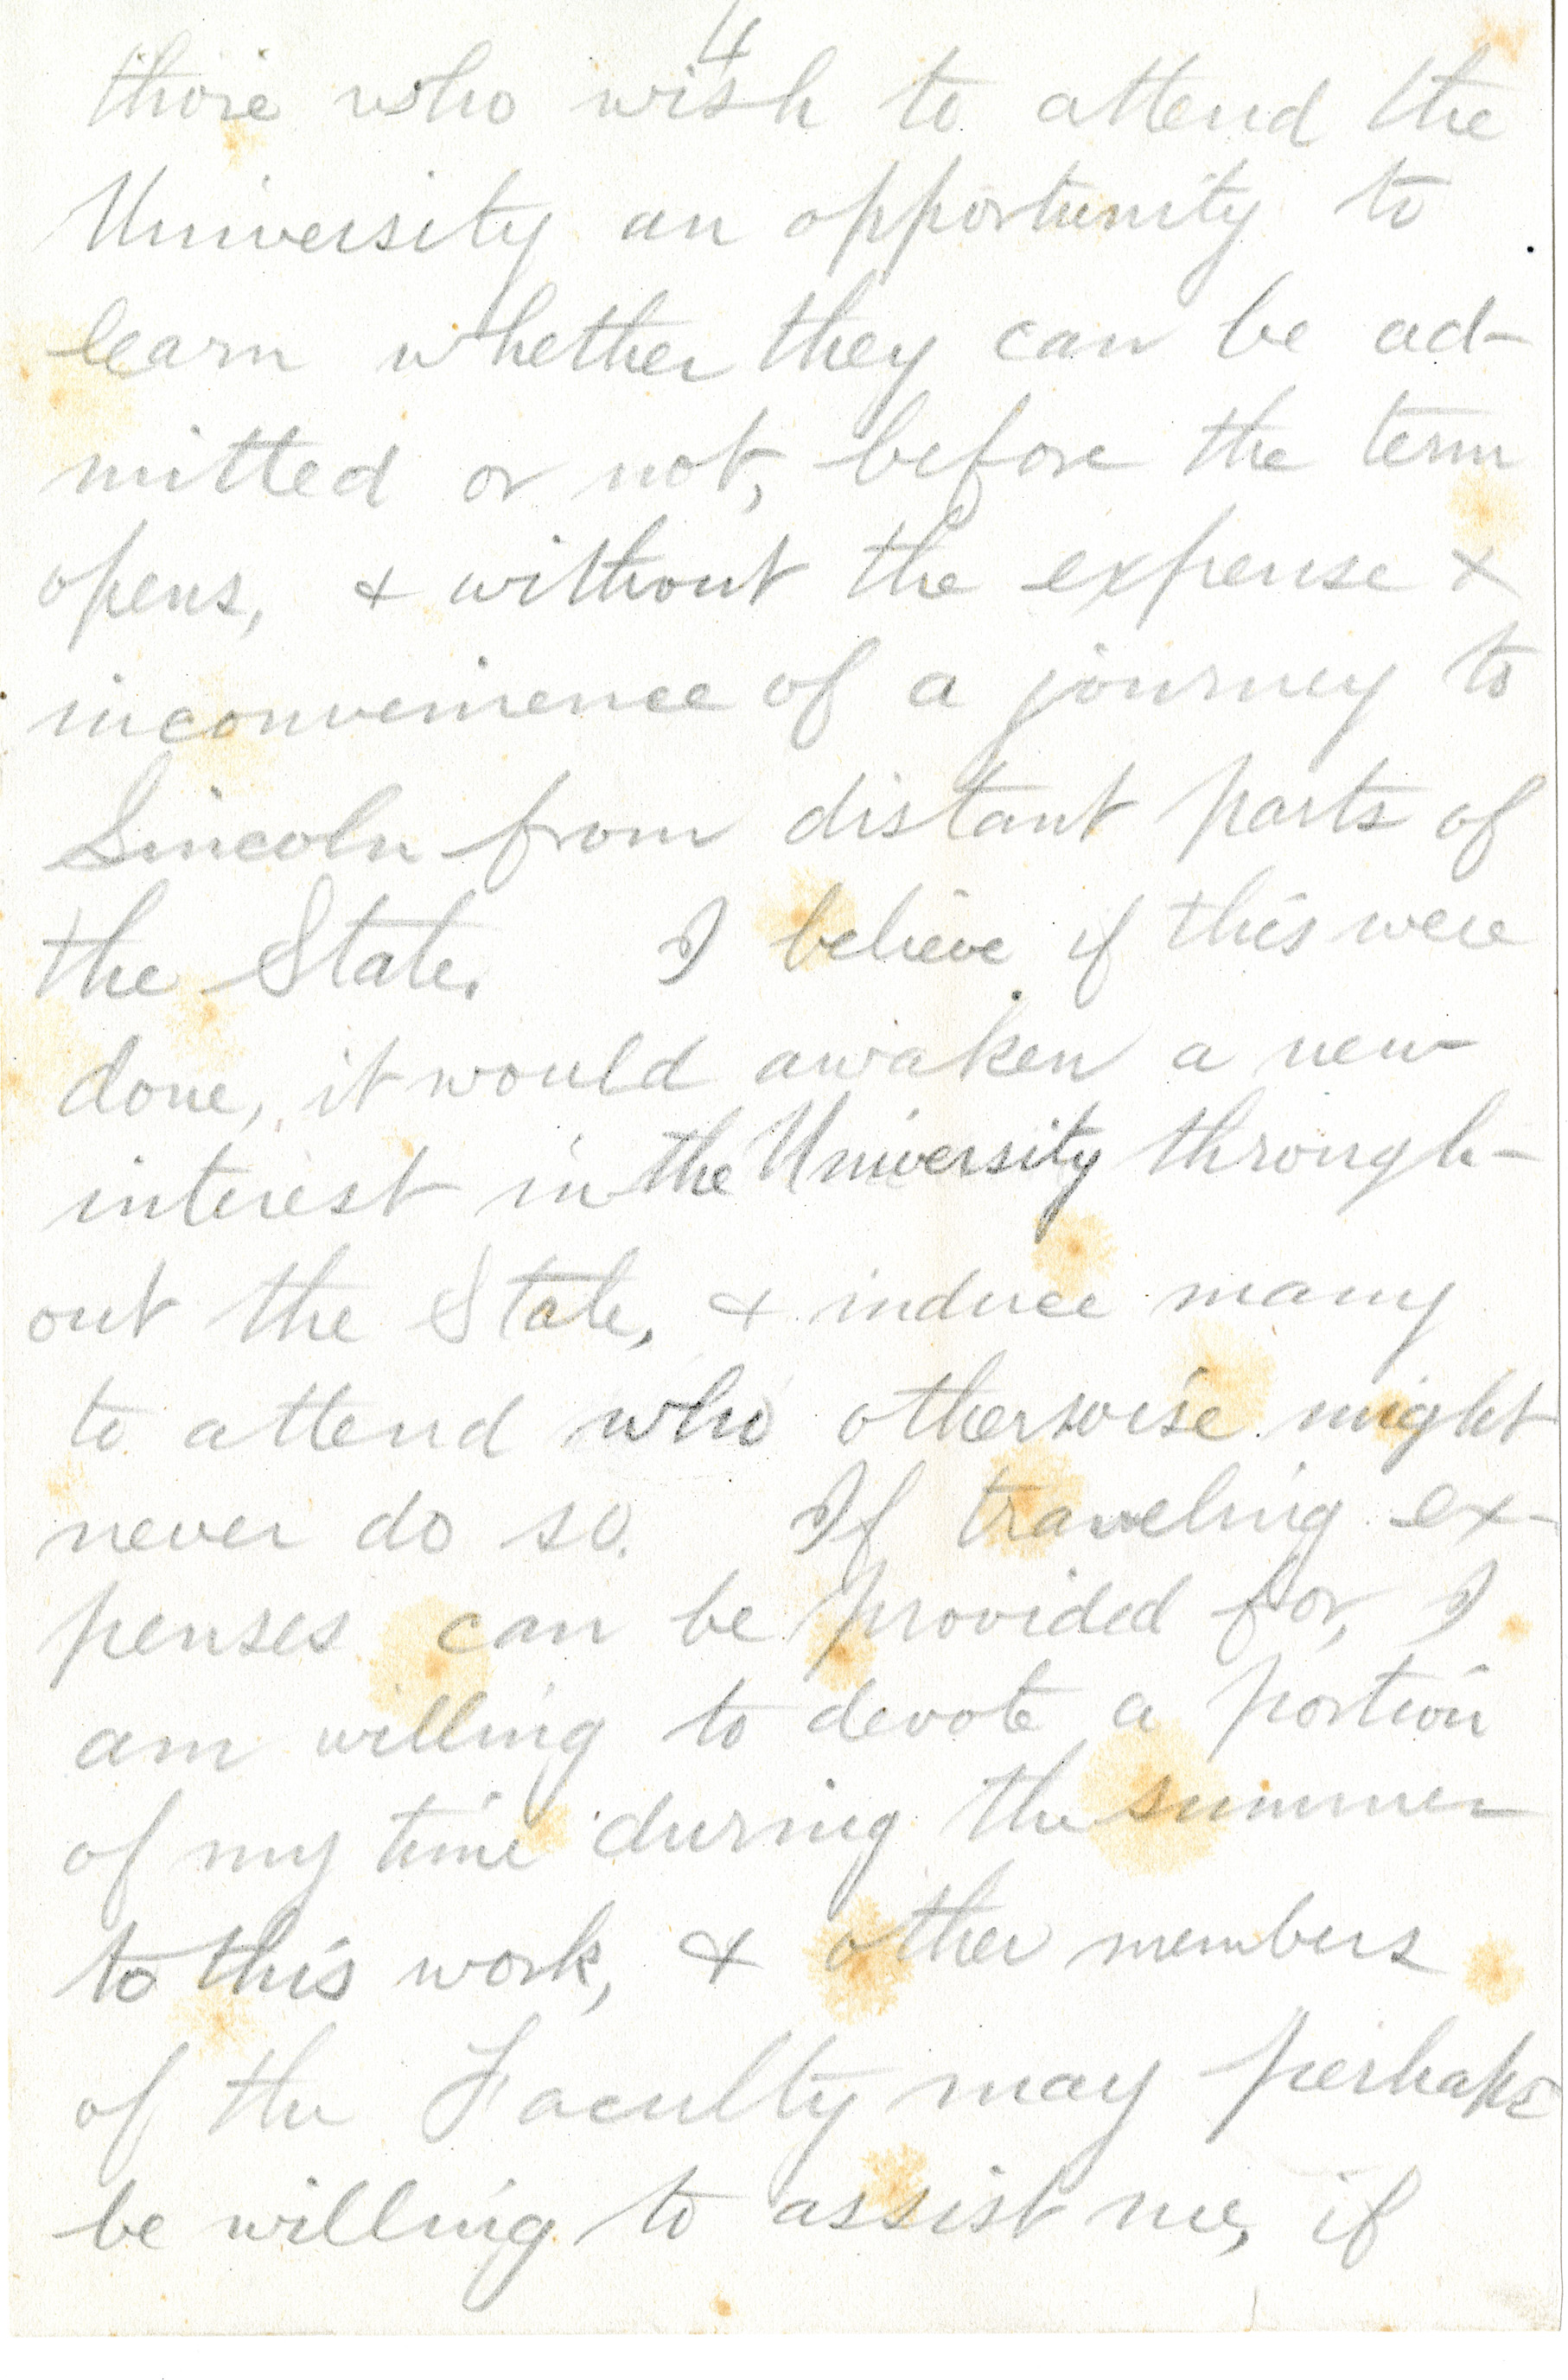 4
those who wish to attend the
University an opportunity to
learn whether they can be ad-
mitted or not, before the term
opens, & without the expense &
inconvenience of a journey to
Lincoln from distant parts of
the State. I believe if this were
done, it would awaken a new
interest in the University through-
out the State, & induce many
to attend who otherwise might
never do so. If traveling ex-
penses can be provided for, I
am willing to devote a portion
of my time during the summer
to this work, & other members
of the Faculty may perhaps
be willing to assist me, if